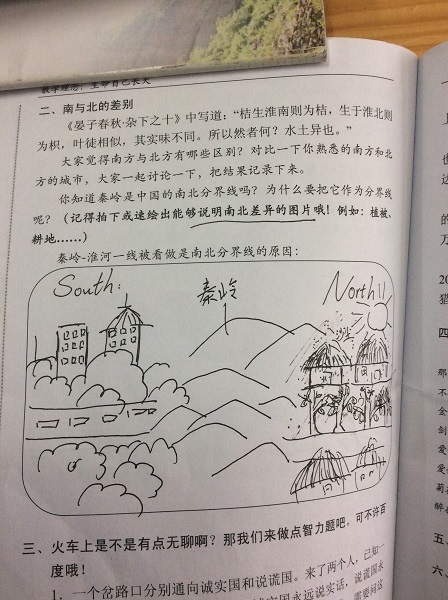 教学理念：生命自己长大
二、南与北的差别
《晏子春秋·杂下之十》中写道：“桔生淮南则为桔，生于淮北则
为枳，叶徒相似，其实味不同。所以然者何？水土异也。”
大家觉得南方与北方有哪些区别？对比一下你熟悉的南方和北
方的城市，大家一起讨论一下，把结果记录下来。
你知道秦岭是中国的南北分界线吗？为什么要把它作为分界线
呢？（记得拍下或速绘出能够说明南北差异的图片哦！例如：植被、
耕地……）
秦岭-淮河一线被看做是南北分界线的原因：
South:
秦岭
North!!
三、火车上是不是有点无聊啊？那我们来做点智力题吧，可不许百
度哦！
1. 一个岔路口分别通向诚实国和说谎国。来了两个人，已知
国永远说实话，说谎国永
需要问这